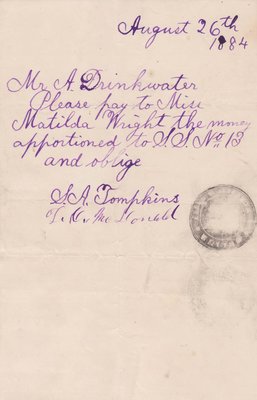 August 26th
1884
Mr A. Drinkwater
Please pay to Miss
Matilda Wright the money
apportioned to S.S. No 13
and oblige
S.A. Tompkins